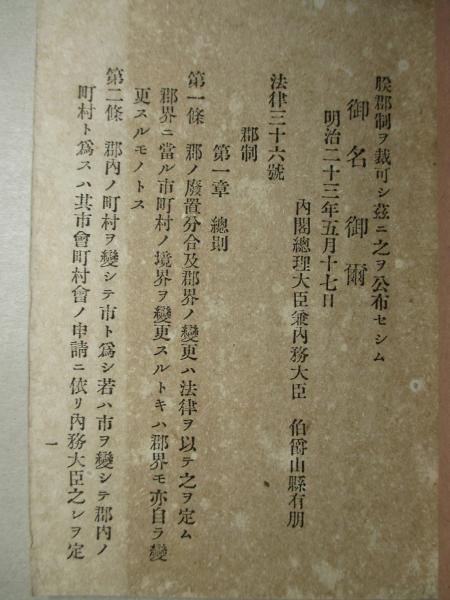 朕郡制ヲ裁可シ玆ニ之ヲ公布セシム
御名御爾
明治二十三年五月十七日
內閣總理大臣兼內務大臣 伯爵山縣有朋
法律三十六號
郡制
第一章 總則
第一條 郡ノ廢置分合及郡界ノ變更ハ法律ヲ以テ之ヲ定ム
郡界ニ當ル市町村ノ境界ヲ變更スルトキハ郡界モ亦自ラ變
更スルモノトス
第二條 郡內ノ町村ヲ變シテ市ト爲シ若ハ市ヲ變シテ郡內ノ
町村ト爲スハ其市會町村會ノ申請ニ依リ內務大臣之レヲ定
一